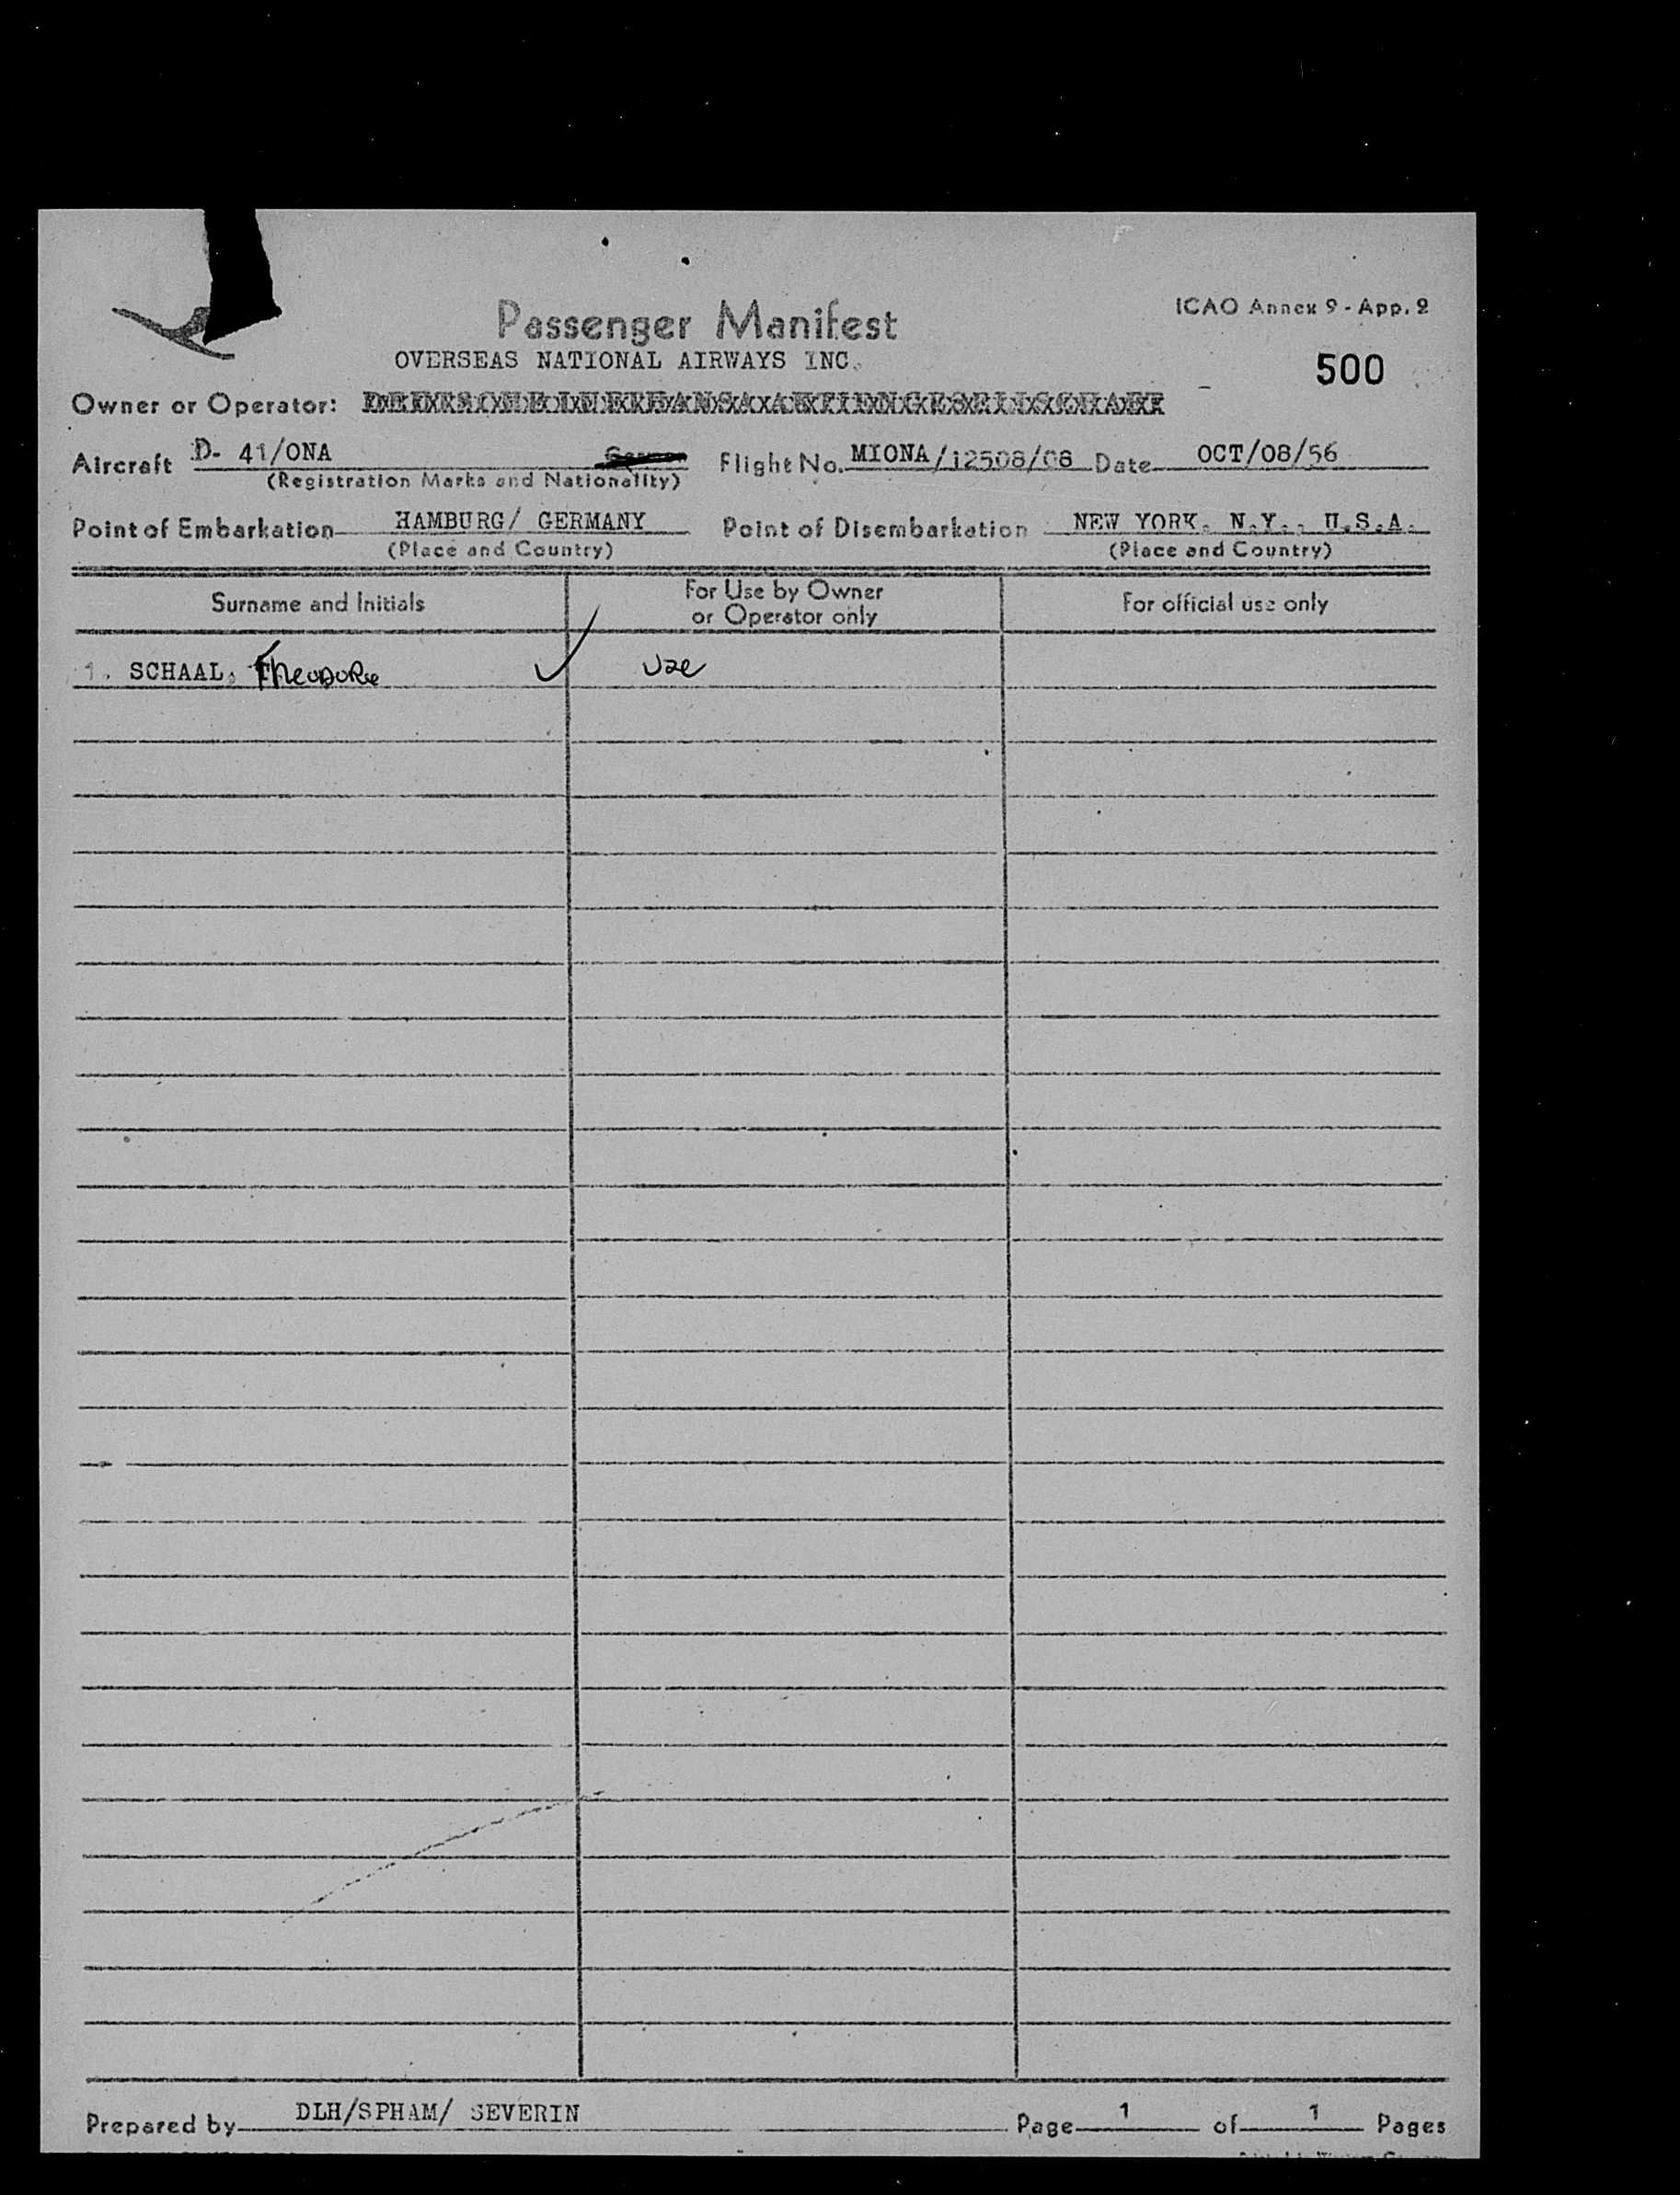 Passenger Manifest
ICAO Annex 9 - App. 2
OVERSEAS NATIONAL AIRWAYS INC.
500
Owner or Operator: DEUTSCHE LUFTHANSA AKTIENGESELLSCHAFT
Aircraft D- 41/ONA German Flight No. MIONA/12508/08 Date OCT/08/56
(Registration Marks and Nationality)
Point of Embarkation HAMBURG/ GERMANY Point of Disembarkation NEW YORK, N.Y., U.S.A.
(Place and Country) (Place and Country)
Surname and Initials
For Use by Owner
or Operator only
For official use only
1. SCHAAL, Theodore
Prepared by DLH/SPHAM/ SEVERIN Page 1 of 1 Pages